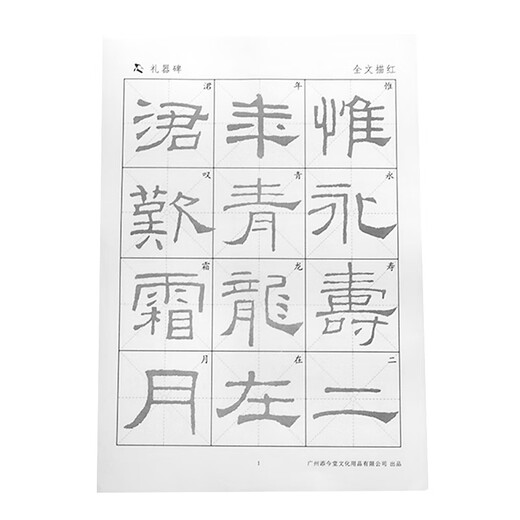 礼器碑
全文描红
惟永壽二
惟永寿二
年青龍在
年青龙在
涒歎霜月
涒叹霜月
1
广州添今堂文化用品有限公司 出品